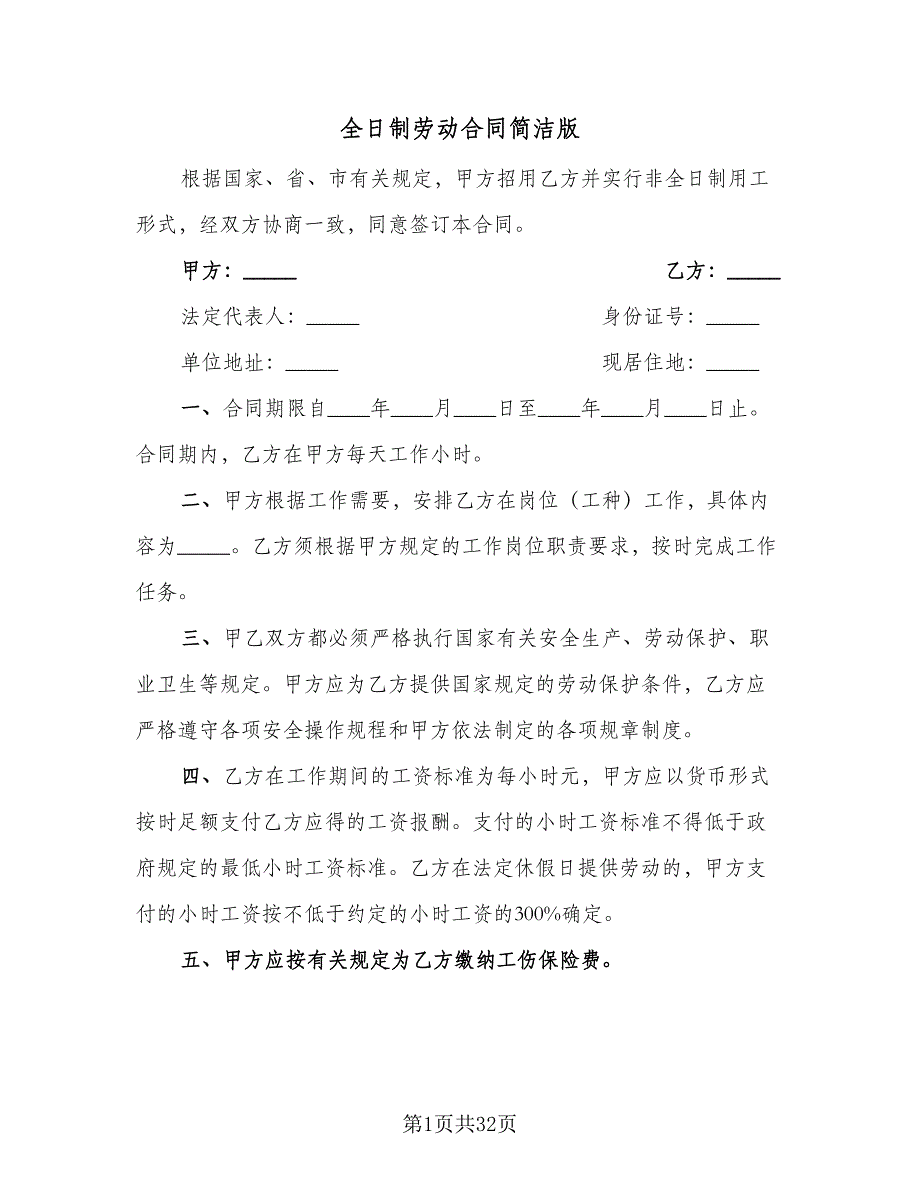 全日制劳动合同简洁版
根据国家、省、市有关规定，甲方招用乙方并实行非全日制用工
形式，经双方协商一致，同意签订本合同。
甲方：_____ 乙方：_____
法定代表人：_____ 身份证号：_____
单位地址：_____ 现居住地：_____
一、合同期限自____年____月____日至____年____月____日止。
合同期内，乙方在甲方每天工作小时。
二、甲方根据工作需要，安排乙方在岗位（工种）工作，具体内
容为_____。乙方须根据甲方规定的工作岗位职责要求，按时完成工作
任务。
三、甲乙双方都必须严格执行国家有关安全生产、劳动保护、职
业卫生等规定。甲方应为乙方提供国家规定的劳动保护条件，乙方应
严格遵守各项安全操作规程和甲方依法制定的各项规章制度。
四、乙方在工作期间的工资标准为每小时元，甲方应以货币形式
按时足额支付乙方应得的工资报酬。支付的小时工资标准不得低于政
府规定的最低小时工资标准。乙方在法定休假日提供劳动的，甲方支
付的小时工资按不低于约定的小时工资的300%确定。
五、甲方应按有关规定为乙方缴纳工伤保险费。
第1页共32页